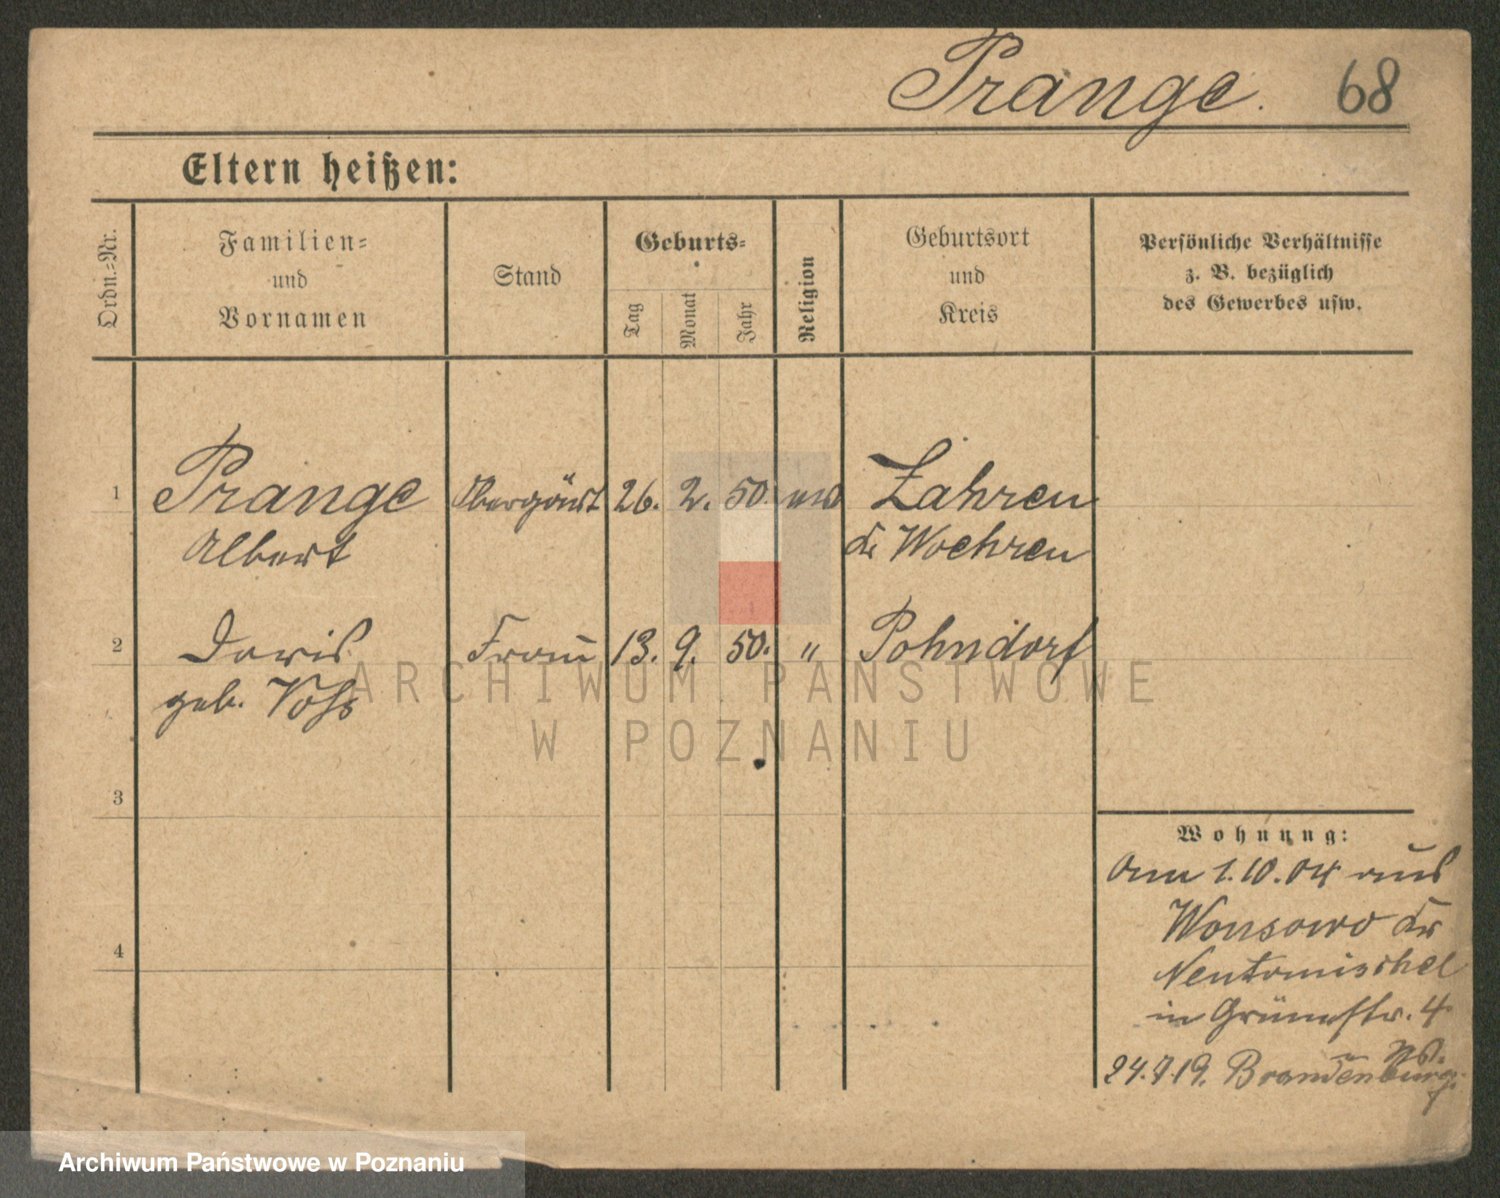 Prange. 68
Eltern heißen:
Ordn.-Nr.
Familien-
und
Vornamen
Stand
Geburts-
Tag
Monat
Jahr
Religion
Geburtsort
und
Kreis
Persönliche Verhältnisse
z. B. bezüglich
des Gewerbes usw.
1 Prange Obergärt 26. 2. 50. ev Zahren
Albert Kr Woehren
2 Doris Frau 13. 9. 50. " Pohndorf
geb. Voß
ARCHIWUM PAŃSTWOWE
W POZNANIU
3
Wohnung:
Am 1.10.04 aus
Wonsowo Kr
4
Neutomischel
in Grünestr. 4
24.7.19. Brandenburg
Archiwum Państwowe w Poznaniu